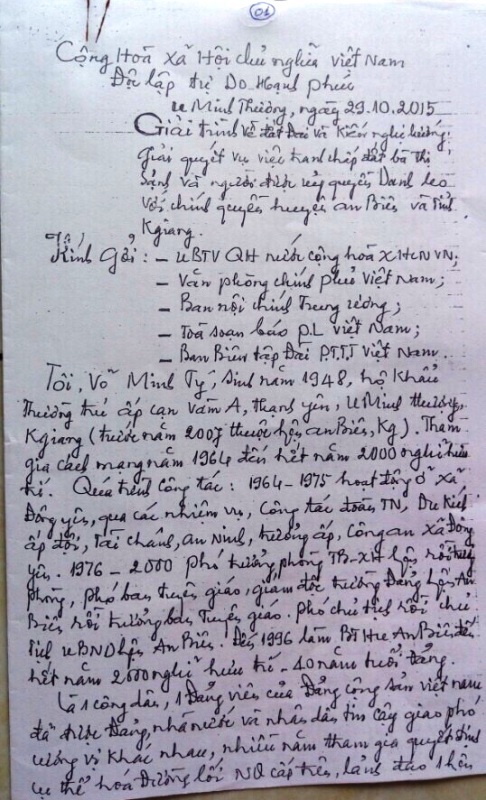 01
Cộng Hoà Xã Hội chủ nghĩa Việt Nam
Độc lập tự Do Hạnh phúc
U Minh Thượng, ngày 29.10.2015
Giải trình về đất đai và kiến nghị hướng
giải quyết vụ việc tranh chấp đất bà thị
và người được uỷ quyền Danh
với chính quyền huyện an Biên và tỉnh
Kgiang.
Kính Gởi: – UBTV QH nước cộng hoà XHCN VN;
– Văn phòng chính phủ Việt Nam;
– Ban nội chính Trung ương;
– Toà soạn báo P.L Việt Nam;
– Ban Biên tập Đài P.T.T Việt Nam.
Tôi, Võ Minh Tỵ, sinh năm 1948, hộ khẩu
Thường trú ấp cạn Vàm A, thạnh yên, U Minh thượng,
Kgiang (trước năm 2007 thuộc hện an Biên, Kg). Tham
gia cách mạng năm 1964 đến hết năm 2000 nghĩ hưu
trí. Quá trình công tác: 1964 – 1975 hoạt động ở xã
Đông yên, qua các nhiệm vụ, công tác đoàn TN, Du Kích
ấp đội, Tài chánh, an Ninh, trưởng ấp, công an xã Đông
yên. 1976 – 2000 phó trưởng phòng TB-XH hện rồi trưởng
phòng, phó ban tuyên giáo, giám đốc trường Đảng hện An
Biên rồi trưởng ban Tuyên giáo. phó chủ tịch rồi chủ
tịch UBND hện An Biên. Đến 1996 làm BT An Biên đến
hết năm 2000 nghĩ hưu trí – 40 năm tuổi đảng.
Là 1 công dân, 1 Đảng viên của Đảng cộng sản việt nam
đã được Đảng, nhà nước và nhân dân tin cậy giao phó
cương vị khác nhau, nhiều năm tham gia quyết định
cụ thể hoá đường lối NQ cấp trên, lảnh đạo 1 hện